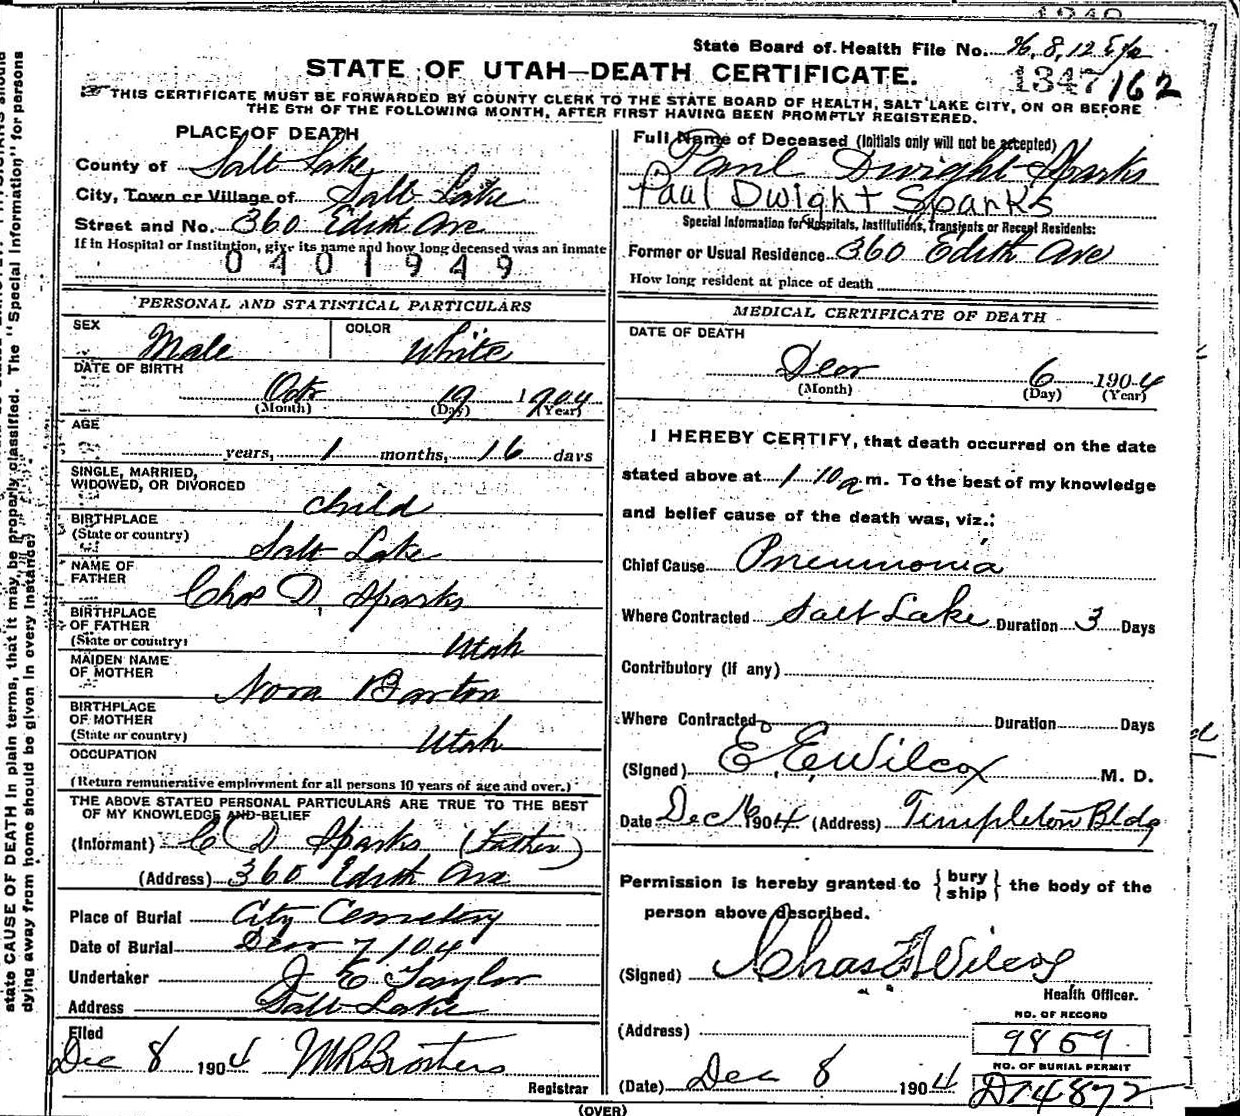 State Board of Health File No.
STATE OF UTAH—DEATH CERTIFICATE.
1347 162
THIS CERTIFICATE MUST BE FORWARDED BY COUNTY CLERK TO THE STATE BOARD OF HEALTH, SALT LAKE CITY, ON OR BEFORE
THE 5TH OF THE FOLLOWING MONTH, AFTER FIRST HAVING BEEN PROMPTLY REGISTERED.
PLACE OF DEATH
County of Salt Lake
City, Town or Village of Salt Lake
Street and No. 360 Edith Ave
If in Hospital or Institution, give its name and how long deceased was an inmate
0401949
Full Name of Deceased (Initials only will not be accepted)
Paul Dwight Sparks
Paul Dwight Sparks
Special Information for Hospitals, Institutions, Transients or Recent Residents:
Former or Usual Residence 360 Edith Ave
How long resident at place of death
PERSONAL AND STATISTICAL PARTICULARS
SEX Male COLOR White
DATE OF BIRTH
Octr 19 1904
(Month) (Day) (Year)
AGE
years, 1 months, 16 days
SINGLE, MARRIED,
WIDOWED, OR DIVORCED
child
BIRTHPLACE
(State or country) Salt Lake
NAME OF
FATHER Chas D. Sparks
BIRTHPLACE
OF FATHER
(State or country) Utah
MAIDEN NAME
OF MOTHER Nora Barton
BIRTHPLACE
OF MOTHER
(State or country) Utah
OCCUPATION
(Return remunerative employment for all persons 10 years of age and over.)
THE ABOVE STATED PERSONAL PARTICULARS ARE TRUE TO THE BEST
OF MY KNOWLEDGE AND BELIEF
(Informant) C D Sparks (Father)
(Address) 360 Edith Ave
Place of Burial City Cemetery
Date of Burial Decr 7/04
Undertaker J E Taylor
Address Salt Lake
Filed
Dec 8 1904
Registrar
MEDICAL CERTIFICATE OF DEATH
DATE OF DEATH
Decr 6 1904
(Month) (Day) (Year)
I HEREBY CERTIFY, that death occurred on the date
stated above at 1 10 a m. To the best of my knowledge
and belief cause of the death was, viz.:
Chief Cause Pneumonia
Where Contracted Salt Lake Duration 3 Days
Contributory (if any)
Where Contracted Duration Days
(Signed) E. E. Wilcox M. D.
Date Dec 1904 (Address) Templeton Bldg
Permission is hereby granted to {bury
ship} the body of the
person above described.
(Signed) Chas F Wilcox
Health Officer.
(Address)
(Date) Dec 8 1904
NO. OF RECORD
9869
NO. OF BURIAL PERMIT
D14872
(OVER)
state CAUSE OF DEATH in plain terms, that it may be properly classified. The "Special Information" for persons
dying away from home should be given in every instance.